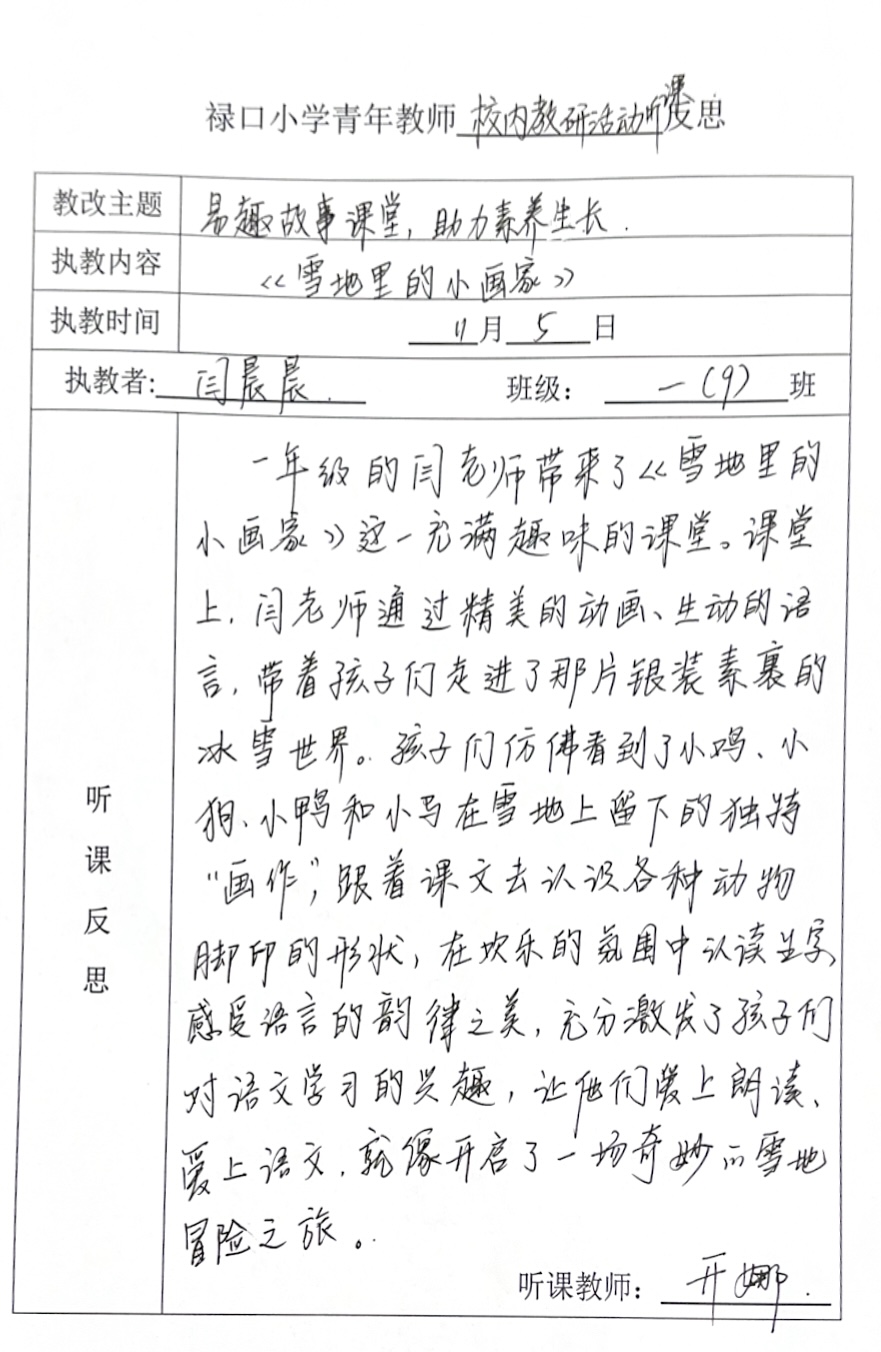 禄口小学青年教师校内教研活动听课反思
教改主题 易趣故事课堂，助力素养生长.
执教内容 《雪地里的小画家》
执教时间 11月5日
执教者: 闫晨晨. 班级： 一（9）班
听课反思
一年级的闫老师带来了《雪地里的
小画家》这一充满趣味的课堂。课堂
上，闫老师通过精美的动画、生动的语
言，带着孩子们走进了那片银装素裹的
冰雪世界。孩子们仿佛看到了小鸡、小
狗、小鸭和小马在雪地上留下的独特
“画作”，跟着课文去认识各种动物
脚印的形状，在欢乐的氛围中认读生字，
感受语言的韵律之美，充分激发了孩子们
对语文学习的兴趣，让他们爱上朗读、
爱上语文，就像开启了一场奇妙的雪地
冒险之旅。
听课教师： 开娜.